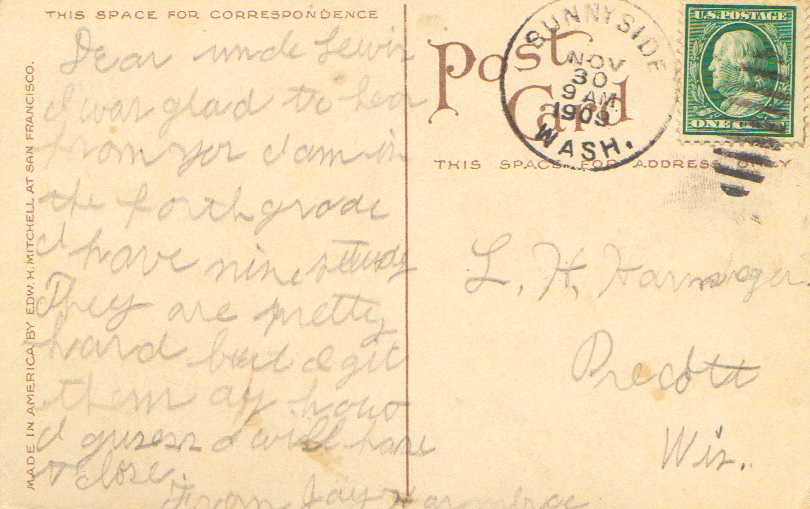 THIS SPACE FOR CORRESPONDENCE
Dear uncle Lewis
I was glad to hear
from yor I am in
the forth grade
I have nine study
They are pretty
hard but I git
them ay how
I guress I will have
to close.
From Jay
MADE IN AMERICA BY EDW. H. MITCHELL AT SAN FRANCISCO.
Post Card
SUNNYSIDE
NOV
30
9 AM
1909
WASH.
U.S. POSTAGE
ONE CENT
THIS SPACE FOR ADDRESS ONLY
L. H.
Precott
Wis.